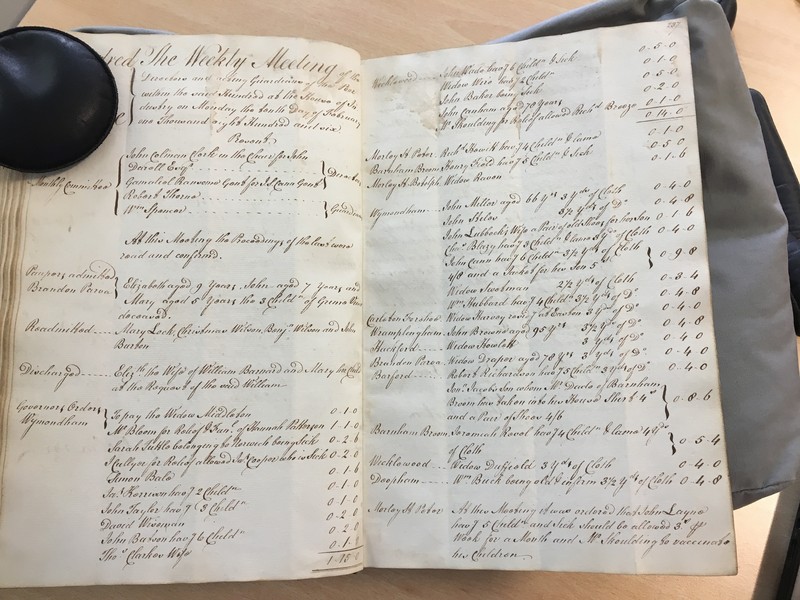 dred The Weekly Meeting of the
Directors and Acting Guardians of the Poor
within the said Hundred at the House of In
dustry on Monday the tenth Day of February
one Thousand eight Hundred and six
Present
John Colman Clerk in the Chair for John
Daroll Esqr
Gamaliel Ransome Gent for
Robert Thorne
Wm Spencer
Directors
Guardians
Monthly Committee
At this Meeting the Proceedings of the last were
read and confirmed.
Paupers admitted
Brandon Parva
Elizabeth aged 9 Years, John aged 7 Years and
Mary aged 5 Years the 3 Childn of
deceased.
Readmitted Mary Lock, Christmas Wilson, Benjn Wilson and John
Burton
Discharged Elizth the Wife of William Barnard and Mary her Child
at the Request of the said William
Governors Orders
Wymondham
To pay the Widow Middleton 0-1-0
Mr Bloom for Relief & Fun. of Hannah Patterson 1-1-0
Sarah Tuttle belonging to Norwich being Sick 0-2-6
J Cullyer for Relief allowed Jas Cooper who is Sick 0-2-0
Simon Bale 0-1-6
Jas Harrison has 72 Childn 0-1-0
John Taylor have 3 Childn 0-1-0
David Wiseman 0-2-0
John Batson has 76 Childn 0-2-0
Thos Clarkes Wife 0-1-0
1-15-0
287
Wicklewood John Wade has 76 Childn & Sick 0-5-0
Widow has 72 Childn 0-1-0
John Baker being Sick 0-5-0
John Canham aged 70 Years 0-2-0
Mr Shoulding for Relief allowed Richd Breeze 0-1-0
0-14-0
Morley St Peter Richd has 74 Childn & lame 0-1-0
Barnham Broom Henry has 75 Childn & Sick 0-5-0
Morley St Botolph Widow Raven 0-1-6
Wymondham John Miller aged 66 Yrs 3 Yds of Cloth 0-4-0
John 3½ Yds of Do 0-4-8
John Lubbocks Wife a Pair of old Shoes for her Son 0-1-6
Chas Blazy has 73 Childn & lame 3 Yds of Cloth 0-4-0
John Cann has 76 Childn 3½ Yds of Cloth
4/8 and a Jacket for his Son 5s 0-9-8
Widow Swatman 2½ Yds of Cloth 0-3-4
Wm Hubbard has 74 Childn 3½ Yds of Do 0-4-8
Carleton Forehoe Widow Harvey resdt at Easton 3 Yds of Do 0-4-0
Wramplingham John Browne aged 95 Yrs 3½ Yds of Do 0-4-8
Hackford Widow Howlett 3 Yds of Do 0-4-0
Brandon Parva Widow Draper aged 78 Yrs 3 Yds of Do 0-4-0
Barford Robert Richardson has 75 Childn 3 Yds of Do 0-4-0
Jacobs Son whom Mr Dado of Barnham
Broom has taken into his House a Shirt 4s
and a Pair of Shoes 4/6 0-8-6
Barnham Broom Jeremiah Reeve has 74 Childn & lame 4 Yds
of Cloth 0-5-4
Wicklewood Widow Duffield 3 Yds of Cloth 0-4-0
Deopham Wm Buck being old & infirm 3½ Yds of Cloth 0-4-8
Morley St Peter At this Meeting it was ordered that John Layne
has 75 Childn and Sick should be allowed 3s p
Week for a Month and Mr Shoulding to vaccinate
his Children